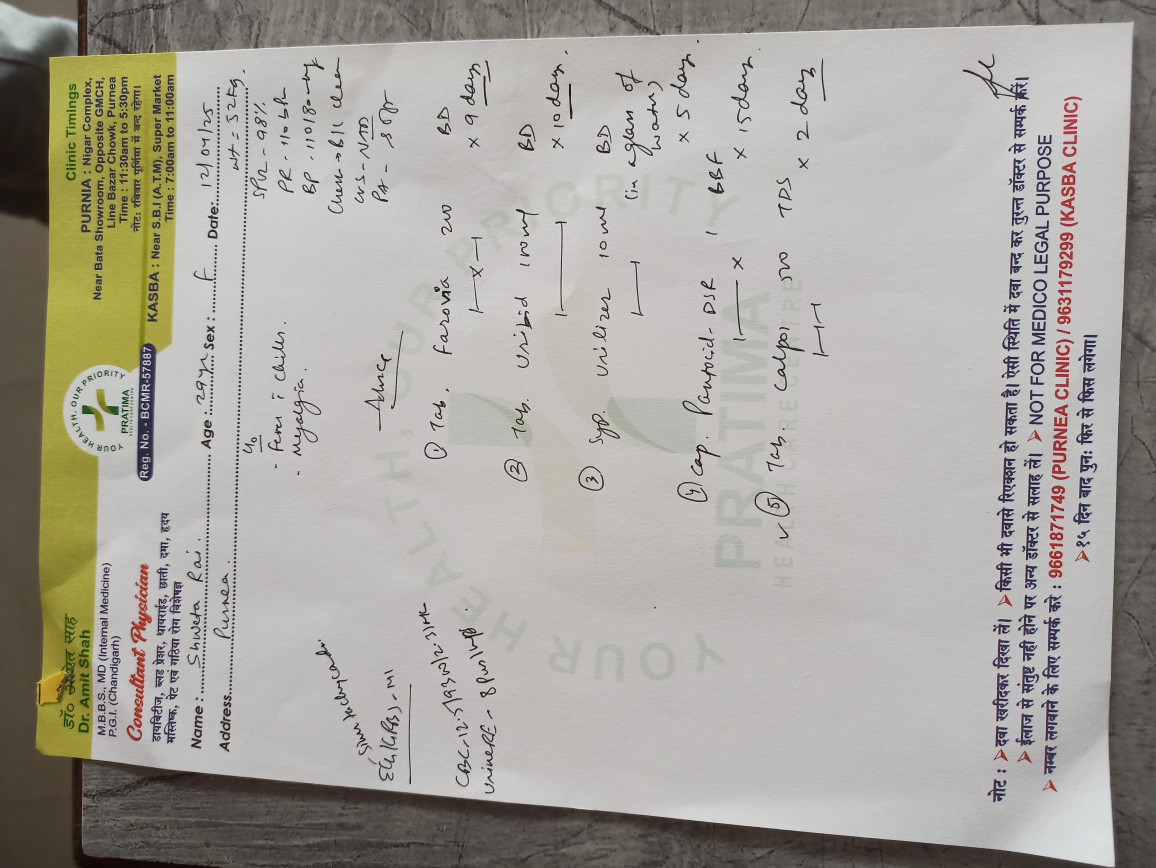 डॉ० अमित साह
Dr. Amit Shah
M.B.B.S., MD (Internal Medicine)
P.G.I. (Chandigarh)
Consultant Physician
डायबिटीज, ब्लड प्रेशर, थायराईड, छाती, दमा, हृदय
मस्तिष्क, पेट एवं गठिया रोग विशेषज्ञ
YOUR HEALTH, OUR PRIORITY
PRATIMA
Reg. No. - BCMR-57887
Clinic Timings
PURNIA : Nigar Complex,
Near Bata Showroom, Opposite GMCH,
Line Bazar Chowk, Purnea
Time : 11:30am to 5:30pm
नोट: रविवार पूर्णिया में बन्द रहेगा।
KASBA : Near S.B.I (A.T.M), Super Market
Time : 7:00am to 11:00am
Name : Shweta Rai. Age : 29yr Sex : F Date: 12/04/25
Address Purnea. wt = 52kg.
SPO2 - 98%
PR - 110
BP - 110/80
Chest → B/L clear
CVS - NAD
PA - soft
c/o
- Fever c chills.
- Myalgia.
Sinus tachycardia
Advice
① Tab. Farovia 200 BD
1 — x — 1 x 9 days
② Tab. Uribid 100mg BD
1 — 1 x 10 days.
③ Syp. Urilizer 10ml BD
1 — 1 (in a glass of water)
x 5 days.
④ Cap. Pantocid-DSR 1 BBF
1 — x x 15 days.
⑤ Tab Calpol 500 TDS
1-1-1 x 2 days
YOUR HEALTH, OUR PRIORITY
PRATIMA
HEALTH CARE CENTRE
नोट : ➤दवा खरीदकर दिखा लें। ➤किसी भी दवासे रिएक्शन हो सकता है। ऐसी स्थिति में दवा बन्द कर तुरन्त डॉक्टर से सम्पर्क करें।
➤ईलाज से संतुष्ट नही होने पर अन्य डॉक्टर से सलाह लें। ➤NOT FOR MEDICO LEGAL PURPOSE
➤नम्बर लगवाने के लिए सम्पर्क करे : 9661871749 (PURNEA CLINIC) / 9631179299 (KASBA CLINIC)
➤१५ दिन बाद पुनः फिर से फिस लगेगा।